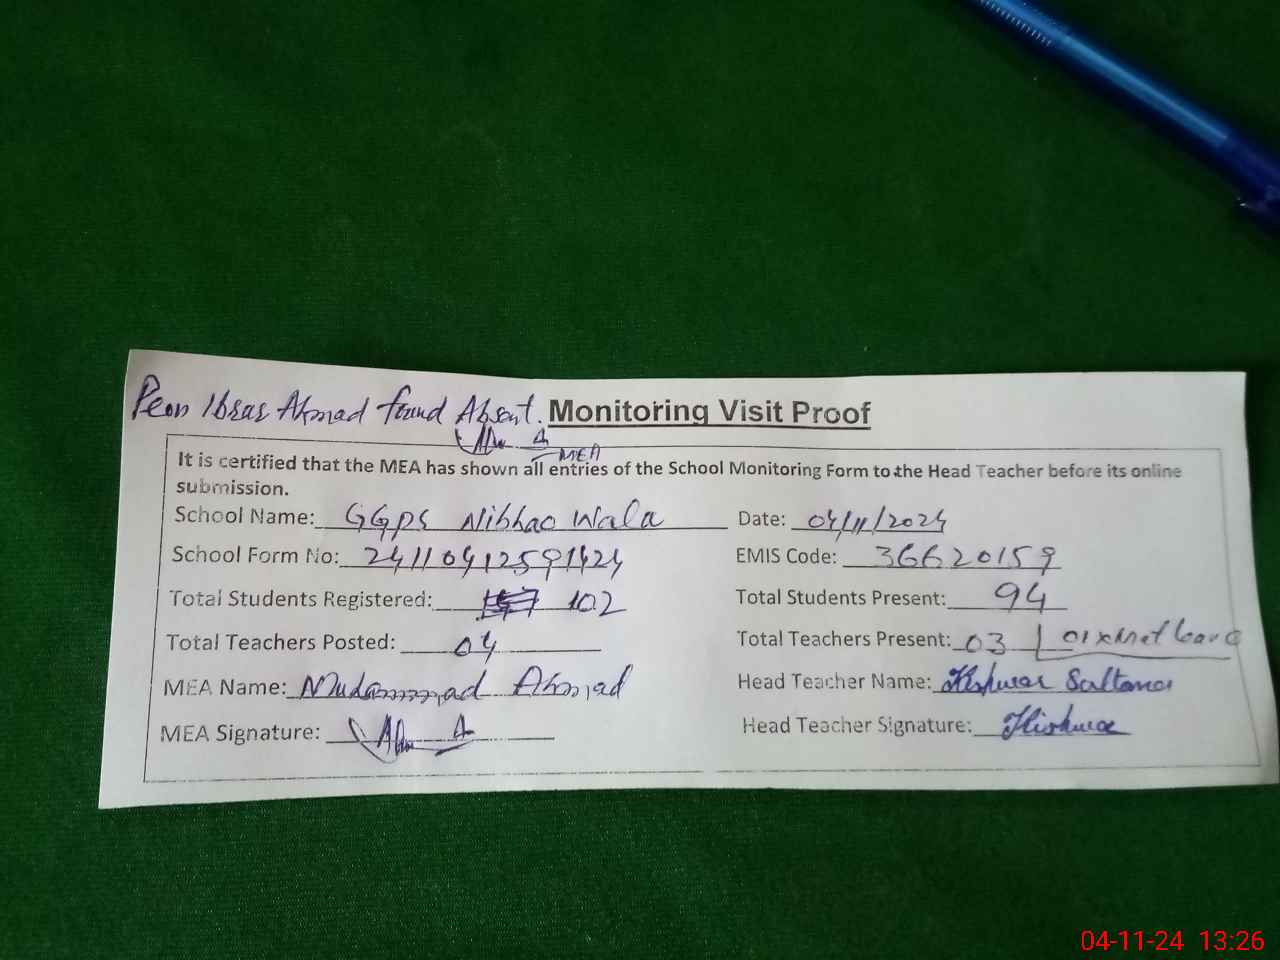 Peon Ibrar Ahmad found Absent. Monitoring Visit Proof
MEA
It is certified that the MEA has shown all entries of the School Monitoring Form to the Head Teacher before its online
submission.
School Name: GGPS Nibhao Wala Date: 04/11/2024
School Form No: 24110412591424 EMIS Code: 36620159
Total Students Registered: 102 Total Students Present: 94
Total Teachers Posted: 04 Total Teachers Present: 03 01 x Mat leave
MEA Name: Muhammad Ahmad Head Teacher Name: Kishwar Sultana
MEA Signature: Head Teacher Signature: Kishwar
04-11-24 13:26